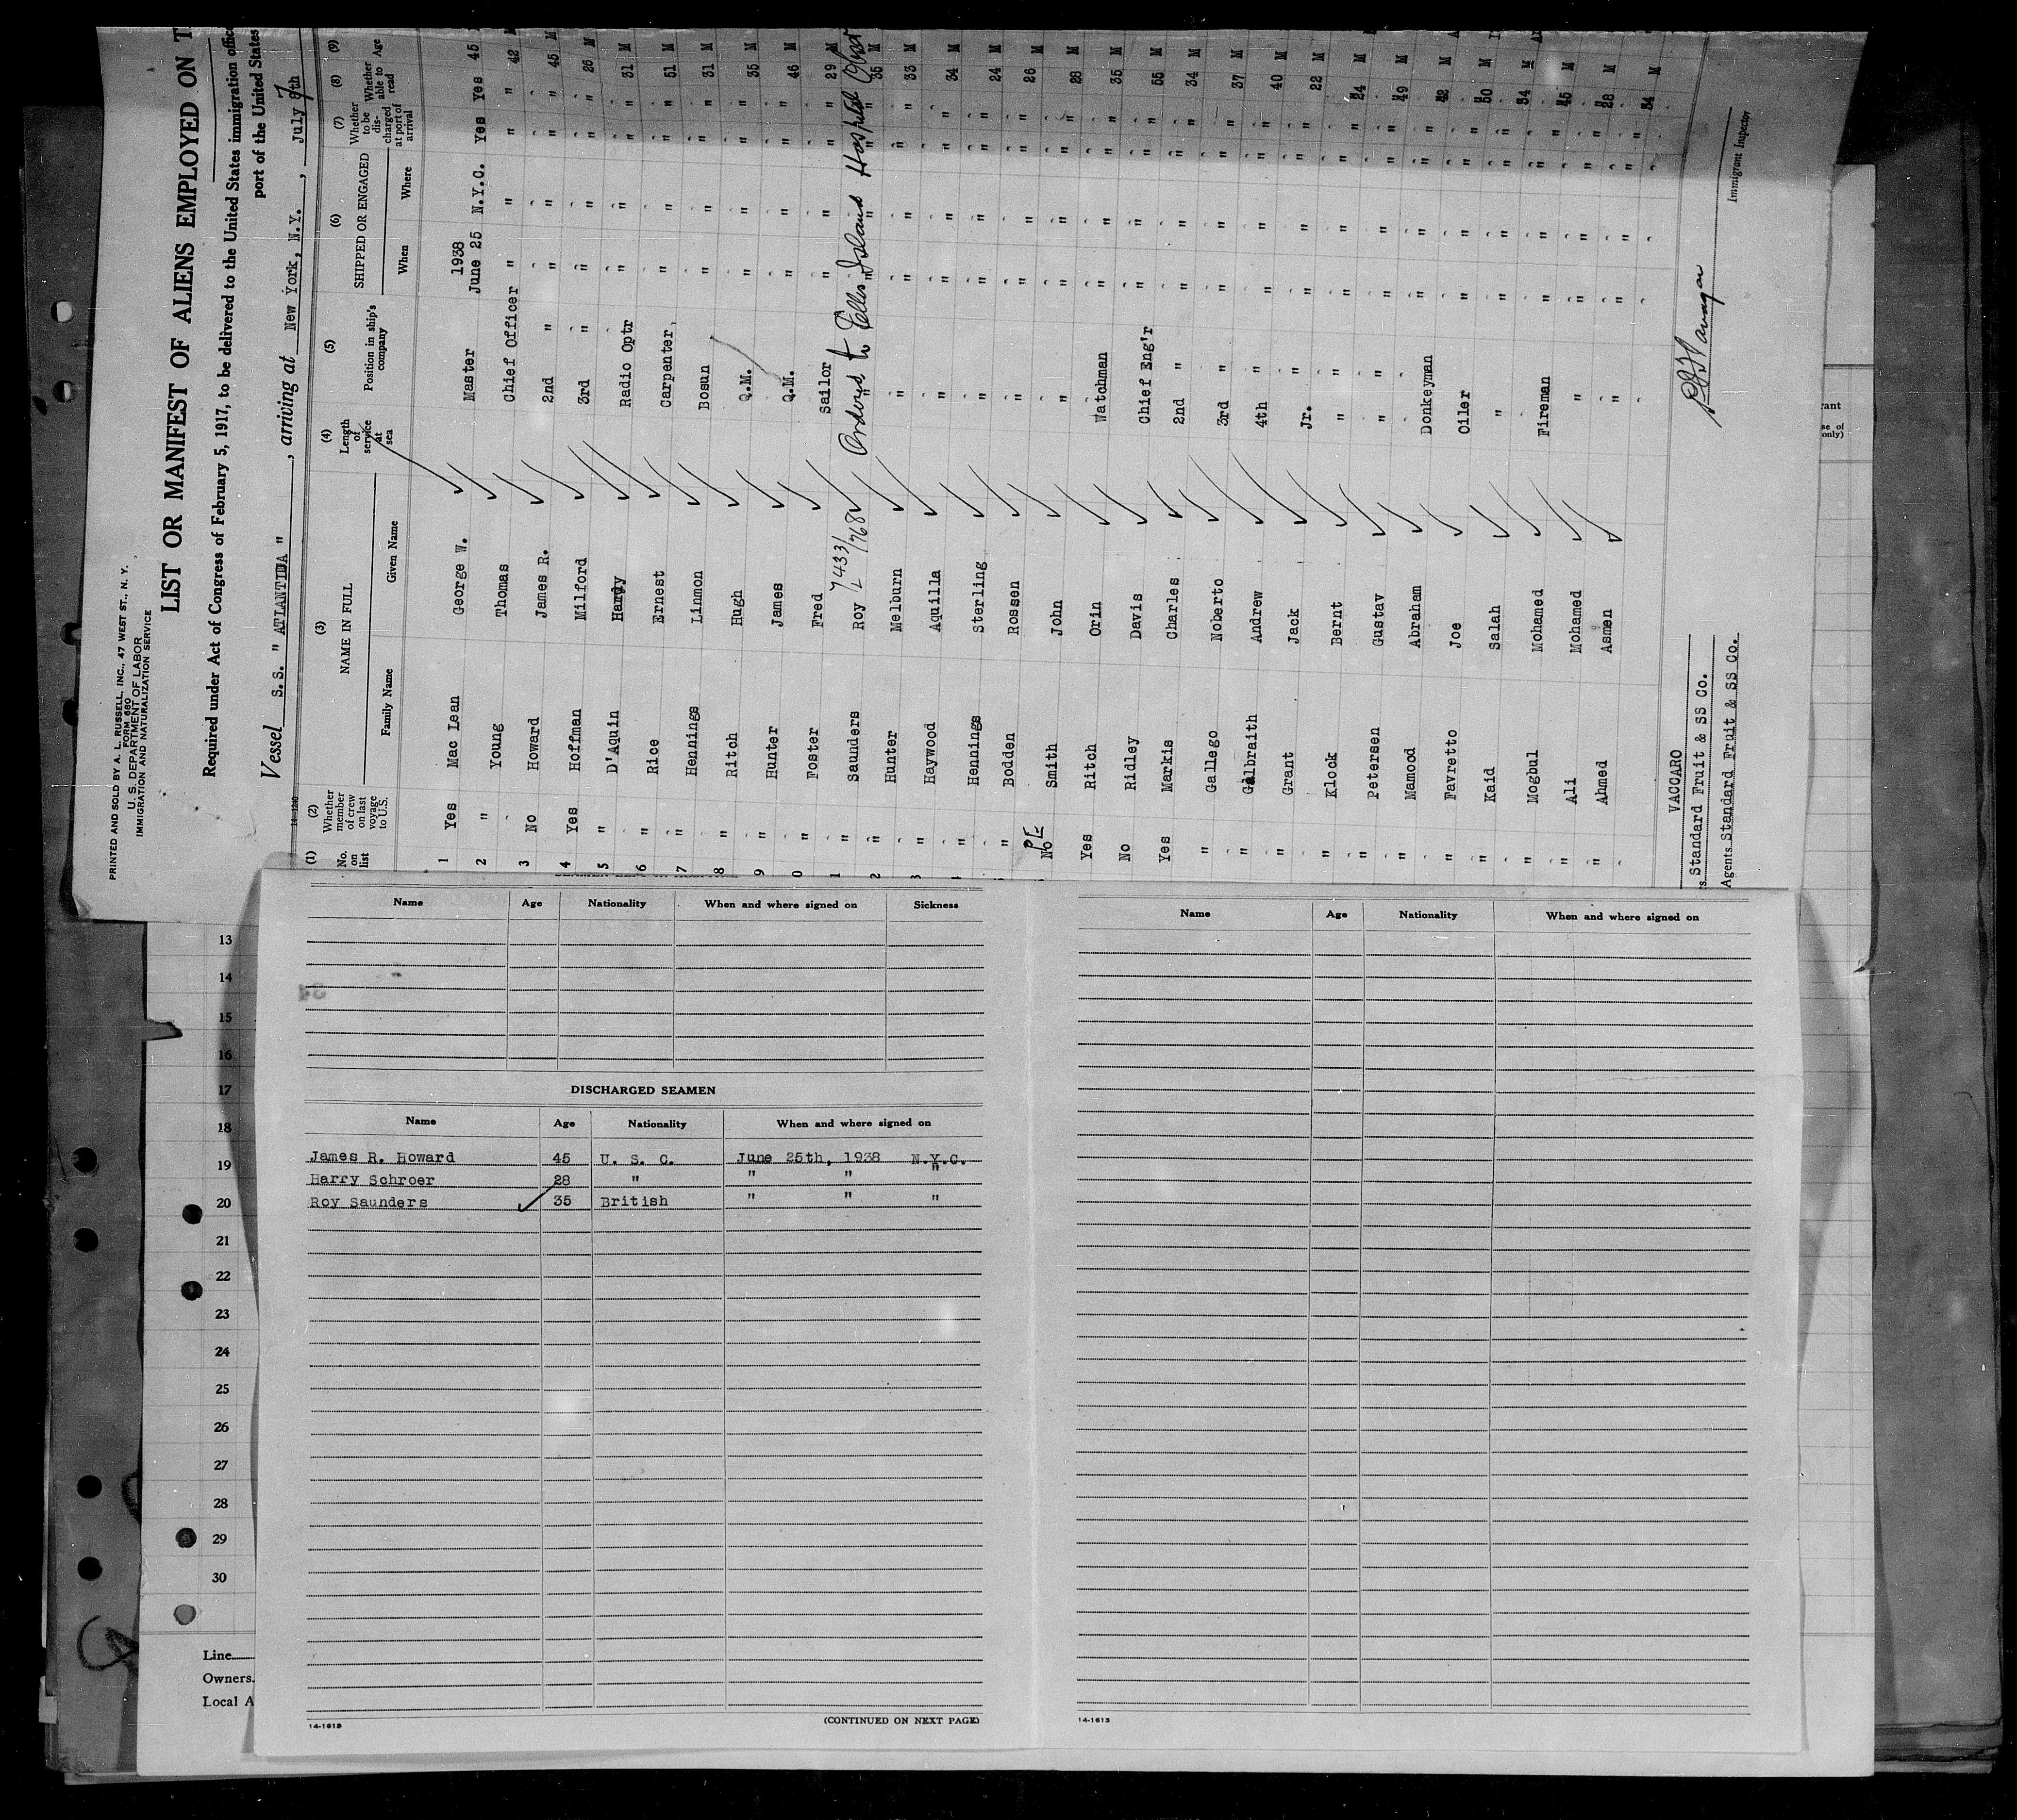 PRINTED AND SOLD BY A. L. RUSSELL, INC., 47 WEST ST., N. Y.
FORM 680
U. S. DEPARTMENT OF LABOR
IMMIGRATION AND NATURALIZATION SERVICE
LIST OR MANIFEST OF ALIENS EMPLOYED ON T
Required under Act of Congress of February 5, 1917, to be delivered to the United States immigration offic
port of the United States
Vessel S.S. " ATLANTIDA " , arriving at New York, N.Y. , July 8th 7
14-1240
(1) No. on list (2) Whether member of crew on last voyage to U.S. (3) NAME IN FULL Family Name Given Name (4) Length of service at sea (5) Position in ship's company (6) SHIPPED OR ENGAGED When Where (7) Whether to be discharged at port of arrival (8) Whether able to read (9) Age
1938
1 Yes Mac Lean George W. Master June 25 N.Y.C. Yes Yes 45
2 " Young Thomas Chief Officer " " " " 42 M
3 No Howard James R. 2nd " " " " " 45 M
4 Yes Hoffman Milford 3rd " " " " " 26 M
5 " D'Aquin Hardy Radio Optr " " " " 31 M
6 " Rice Ernest Carpenter " " " " 51 M
7 " Hennings Linmon Bosun " " " " 31 M
8 " Ritch Hugh Q.M. " " " " 35 M
9 " Hunter James Q.M. " " " " 46 M
0 " Foster Fred Sailor " " " " 29 M
1 " Saunders Roy 7433/1768 " Ordered to Ellis Island Hospital " " 35 M
2 " Hunter Melburn " " " " " 33 M
3 " Haywood Aquilla " " " " " 34 M
" Hennings Sterling " " " " " 24 M
" Bodden Rossen " " " " " 26 M
No Smith John " " " " " 28 M
Yes Ritch Orin Watchman " " " " 35 M
No Ridley Davis Chief Eng'r " " " " 55 M
Yes Markis Charles 2nd " " " " " 34 M
" Gallego Noberto 3rd " " " " " 37 M
" Galbraith Andrew 4th " " " " " 40 M
" Grant Jack Jr. " " " " " 22 M
" Klock Bernt " " " " " " 24 M
" Petersen Gustav " " " " " " 49 M
" Mamood Abraham Donkeyman " " " " 42 M
" Favretto Joe Oiler " " " " 50 M
" Kaid Salah " " " " " 34 M
" Mogbul Mohamed Fireman " " " " 45 M
" Ali Mohamed " " " " " 28 M
" Ahmed Asmen " " " " " 34 M
VACCARO
Standard Fruit & SS Co.
Agents Standard Fruit & SS Co.
Immigrant Inspector
rant
se of
only)
13
14
15
16
17
18
19
20
21
22
23
24
25
26
27
28
29
30
Line
Owners
Local A
Name Age Nationality When and where signed on Sickness
DISCHARGED SEAMEN
Name Age Nationality When and where signed on
James R. Howard 45 U. S. C. June 25th, 1938 N.Y.C.
Harry Schroer 28 " " " "
Roy Saunders 35 British " " "
14-1613
(CONTINUED ON NEXT PAGE)
Name Age Nationality When and where signed on
14-1613